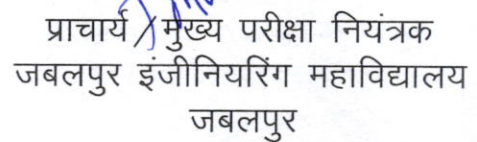 प्राचार्य / मुख्य परीक्षा नियंत्रक
जबलपुर इंजीनियरिंग महाविद्यालय
जबलपुर